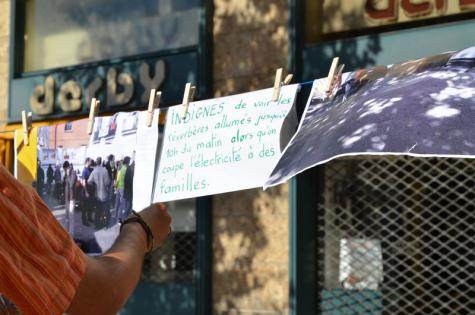 derby
derby
INDIGNES de voir les
réverbères allumés jusqu'à
10h du matin alors qu'on
coupe l'électricité à des
familles.